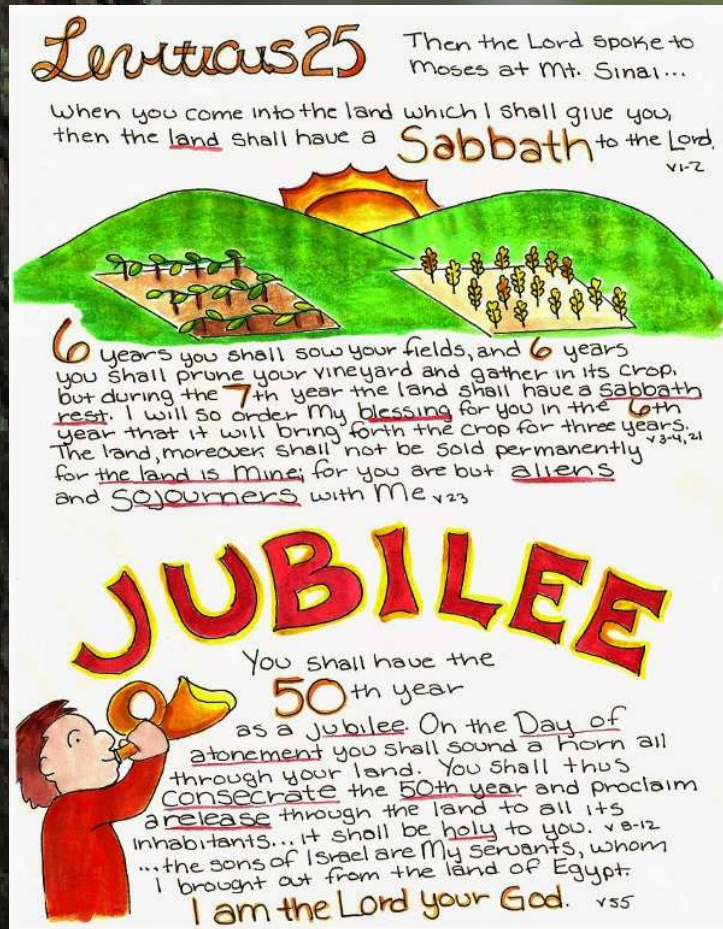 Leviticus 25
Then the Lord spoke to
Moses at Mt. Sinai...
When you come into the land which I shall give you,
then the land shall have a Sabbath to the Lord.
v1-2
6 years you shall sow your fields, and 6 years
you shall prune your vineyard and gather in its crop,
but during the 7th year the land shall have a Sabbath
rest. I will so order My blessing for you in the 6th
year that it will bring forth the crop for three years.
v3-4, 21
The land, moreover, shall not be sold permanently
for the land is Mine; for you are but aliens
and Sojourners with Me v23
JUBILEE
You shall have the
50th year
as a jubilee. On the Day of
atonement you shall sound a horn all
through your land. You shall thus
consecrate the 50th year and proclaim
a release through the land to all its
inhabitants... it shall be holy to you. v 8-12
...the sons of Israel are My servants, whom
I brought out from the land of Egypt.
I am the Lord your God. v55